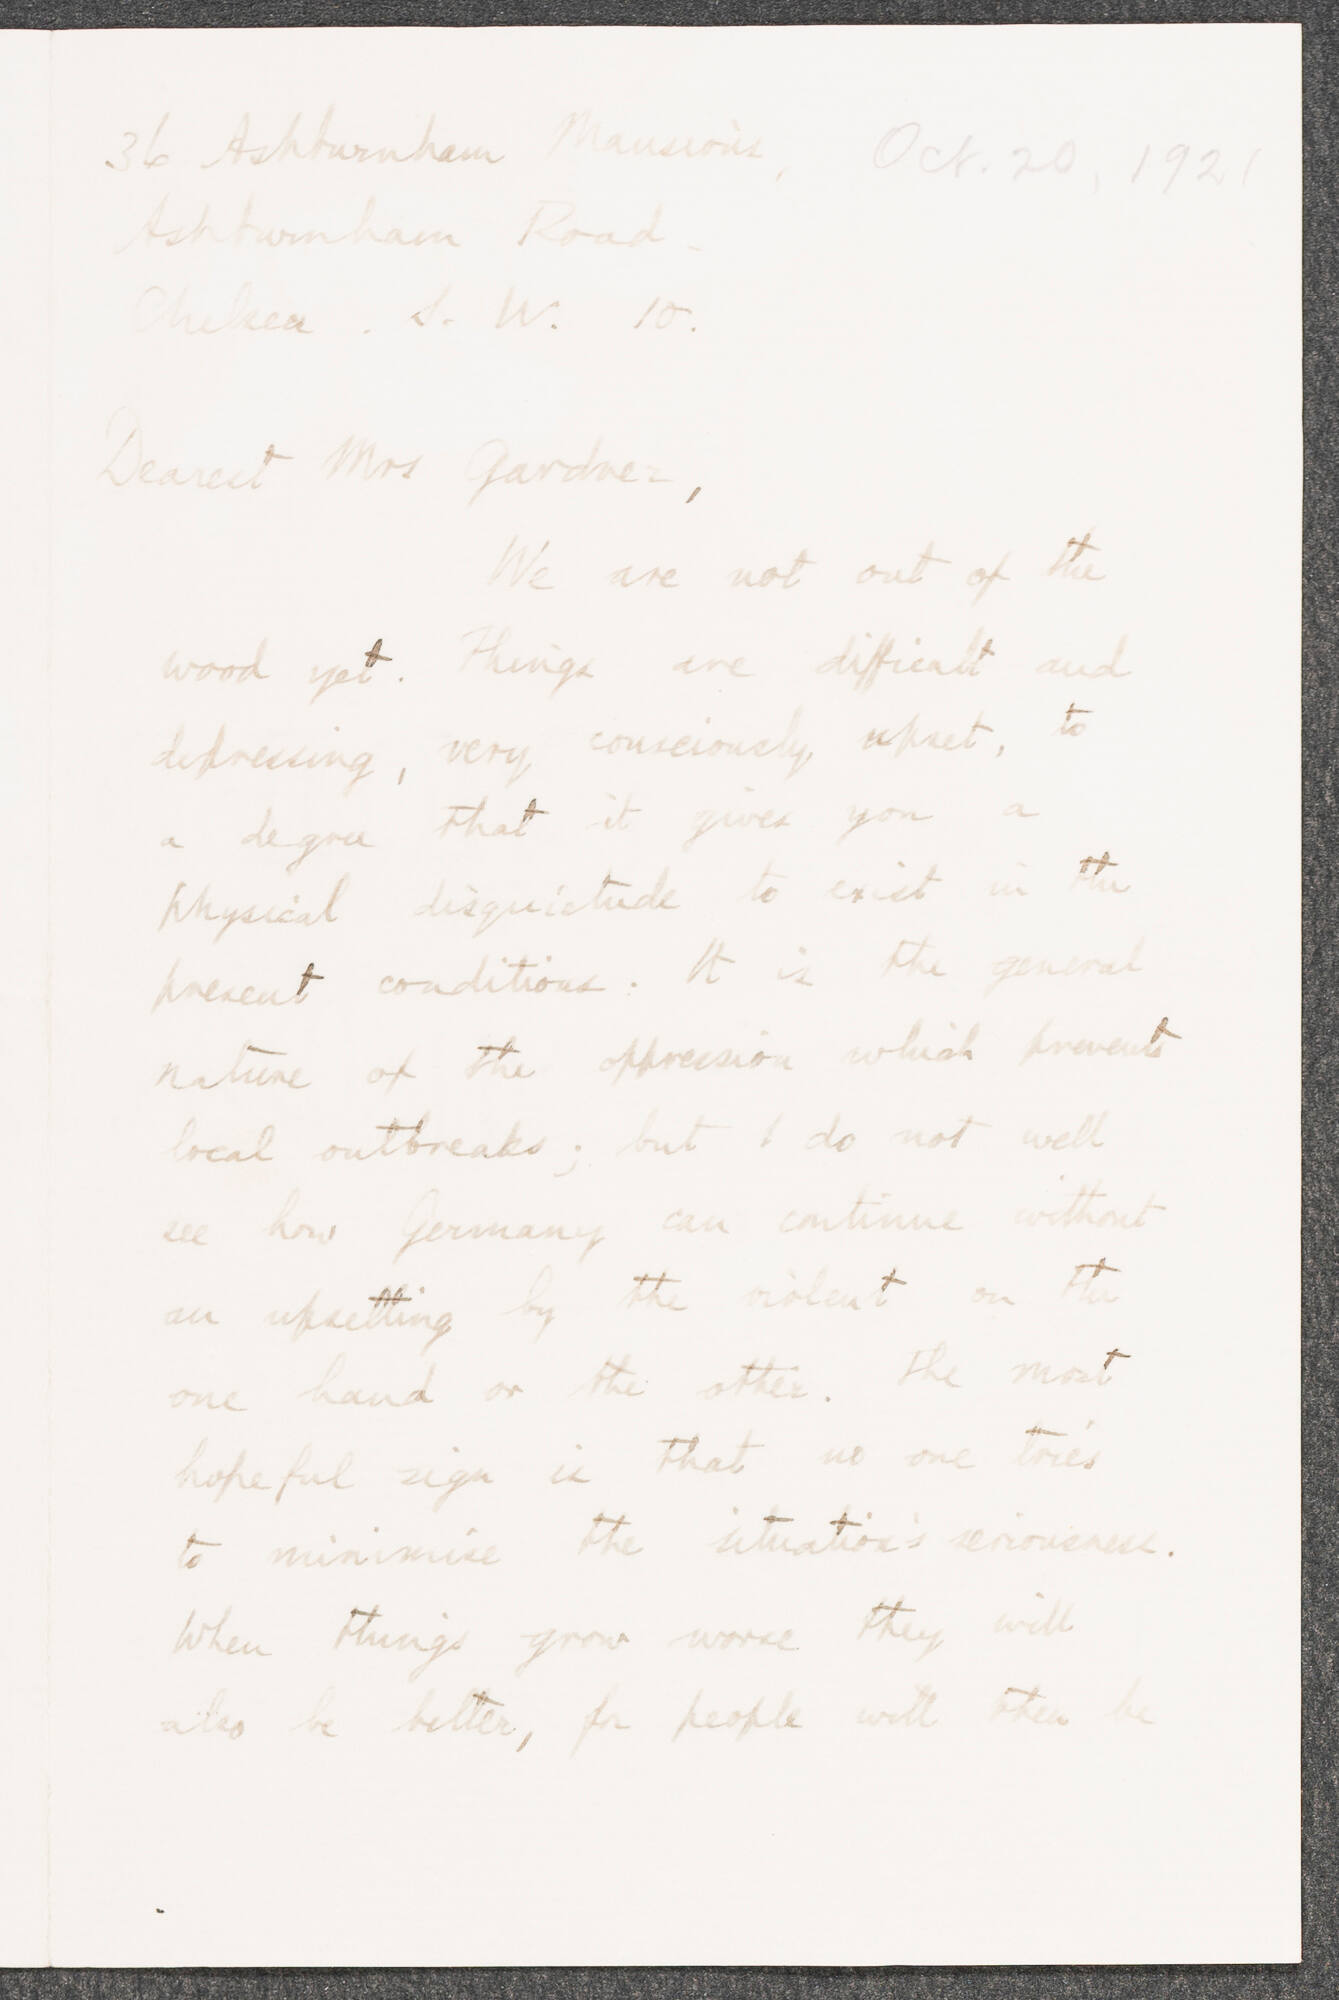 36 Ashburnham Mansions, Oct. 20, 1921
Ashburnham Road.
Chelsea. S. W. 10.
Dearest Mrs Gardner,
We are not out of the
wood yet. Things are difficult and
depressing, very consciously upset, to
a degree that it gives you a
physical disquietude to exist in the
present conditions. It is the general
nature of the oppression which prevents
local outbreaks; but I do not well
see how Germany can continue without
an upsetting by the violent on the
one hand or the other. The most
hopeful sign is that no one tries
to minimise the situation's seriousness.
When things grow worse they will
also be better, for people will then be